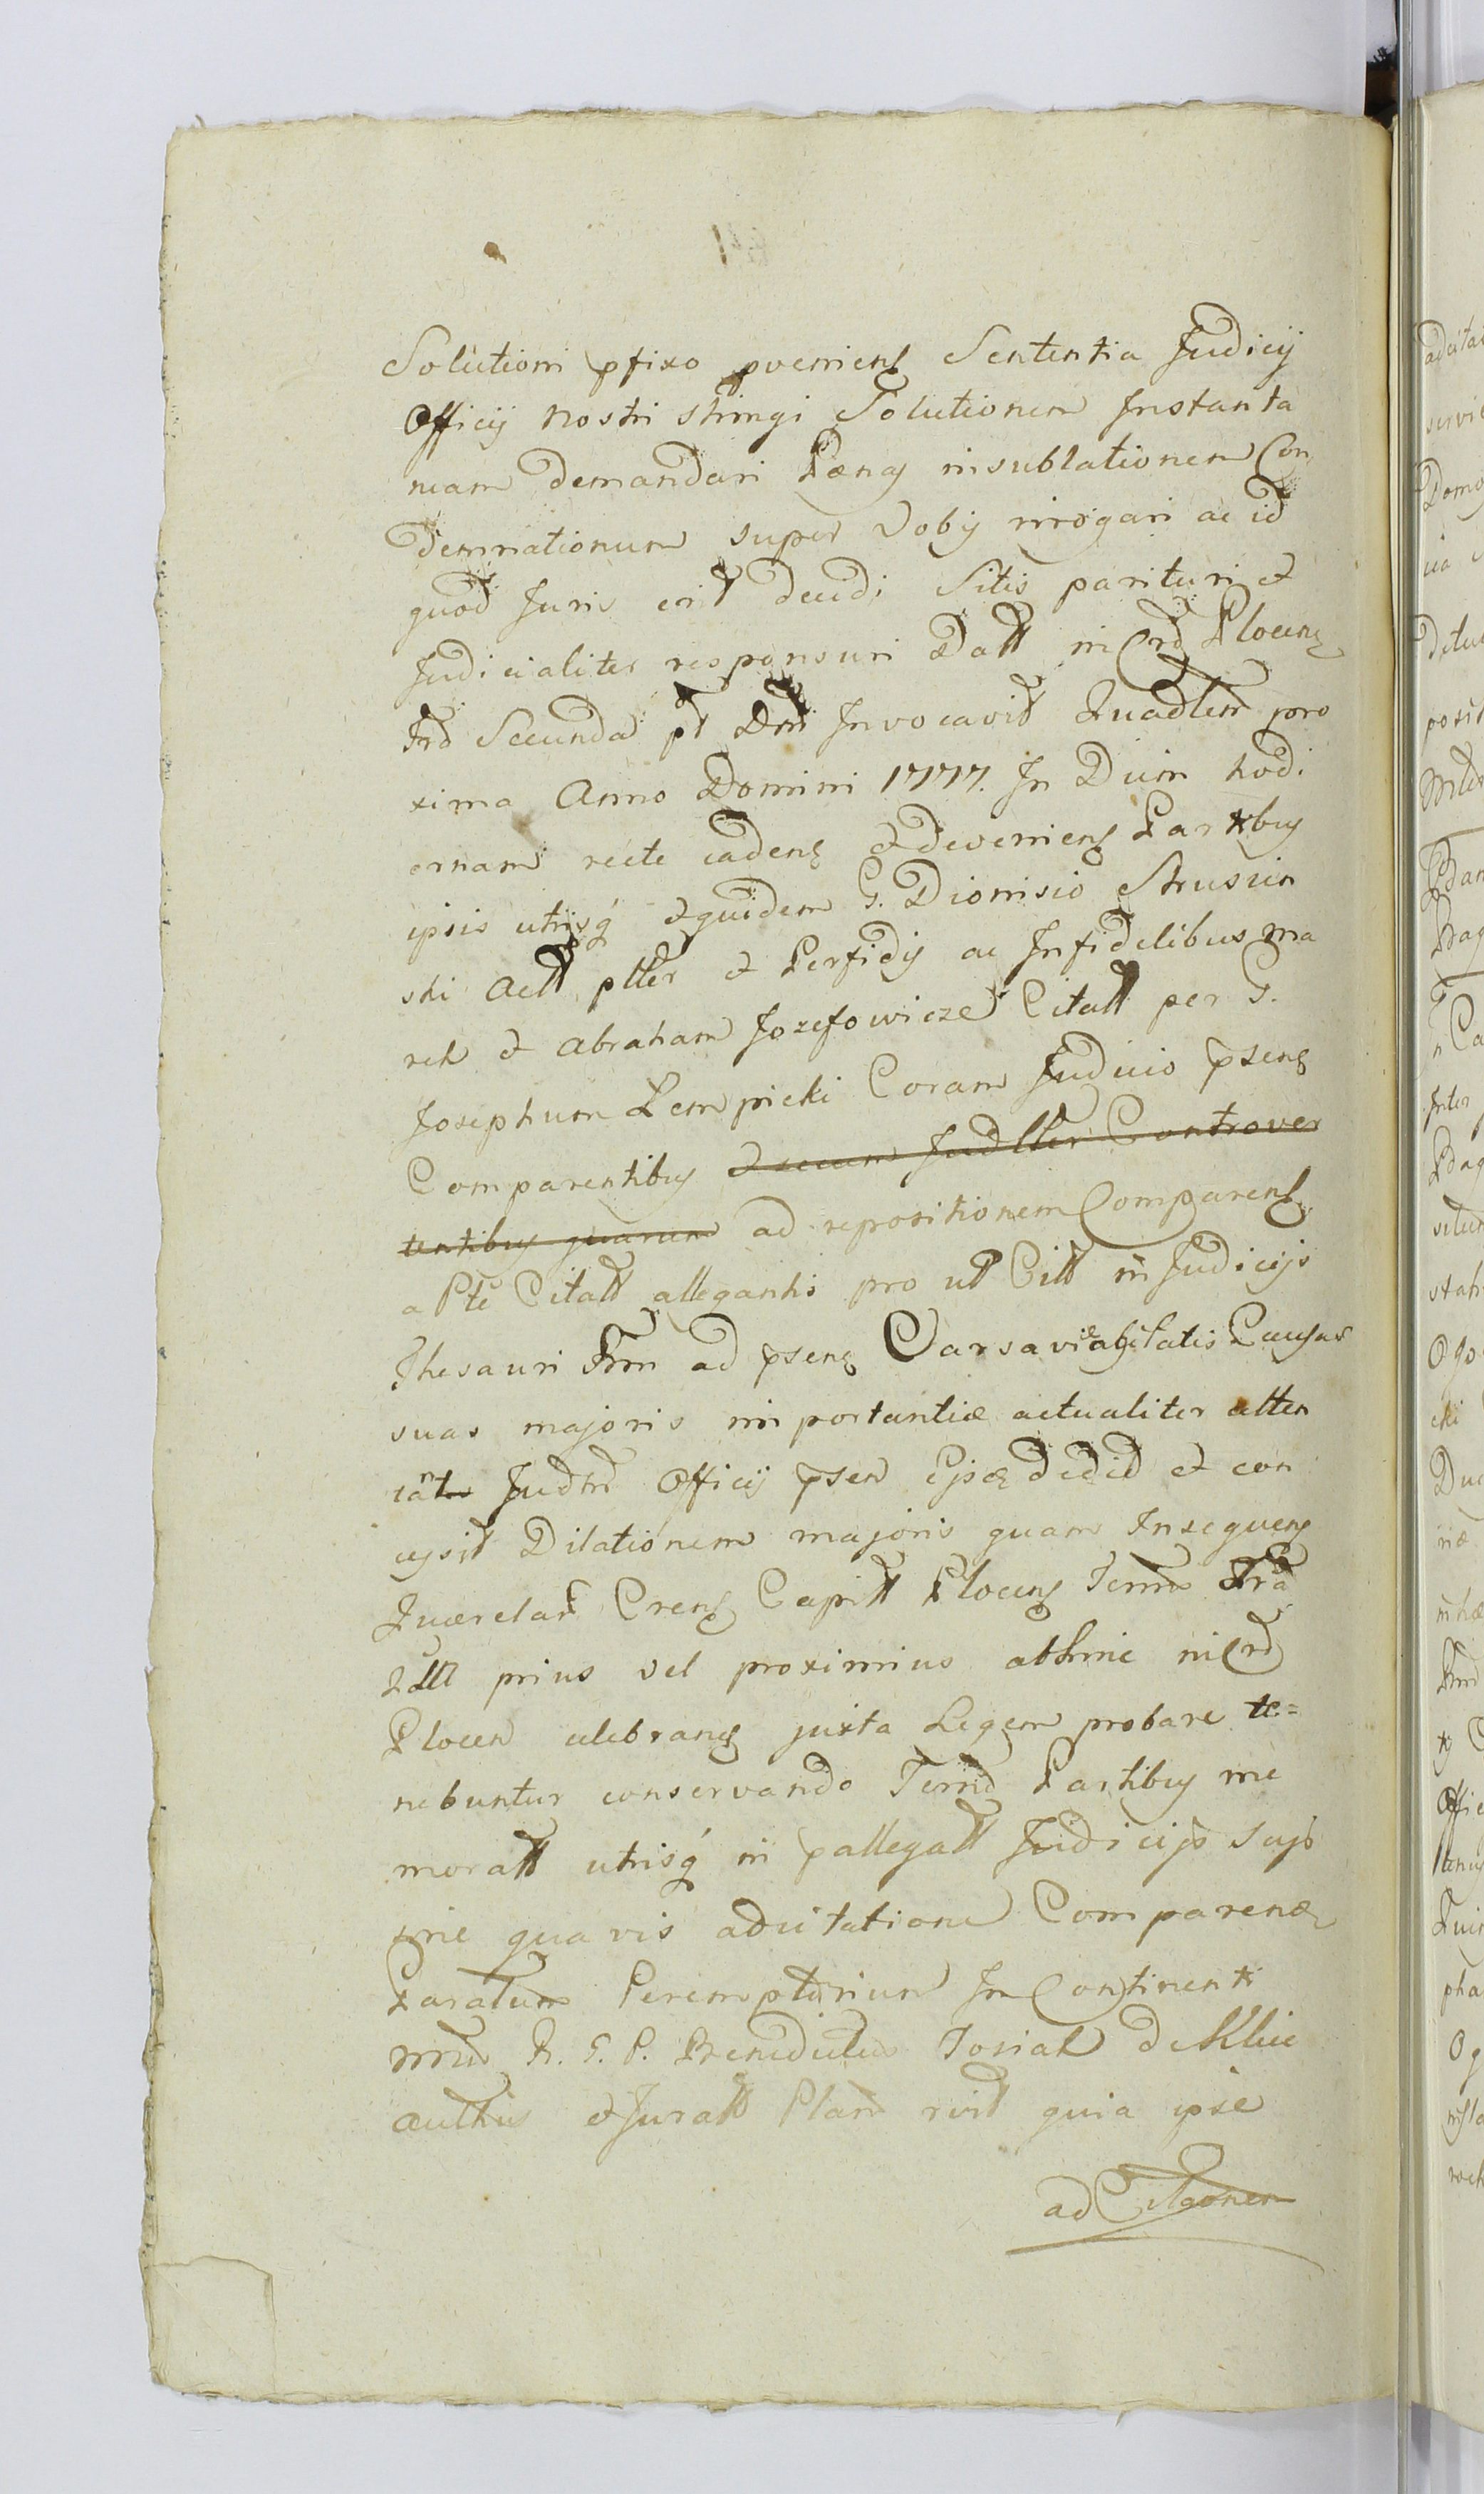 Solutioni pfixo pveniens Sententia Judicij
Officij nostri stringi Solutionem Instanta
neam demandari Pænas in sublationem Con
demnationum super Vobis irrogari ac id
quod Juris erit decidi Sitis parituri et
Judicialiter responsuri Datt in Crd Plocens
Frd Secunda pt Dm Invocavit Quadlem pro
xima Anno Domini 1777. In Diem hodi
ernam recte cadens et deveniens Partibus
ipsis utrisq et quidem G. Dionisio Strusin
ski Actt plter et Perfidis ac Infidelibus Ma
rek et Abraham Jozefowicze Citatt per G.
Josephum Lempicki Coram Judicio psens
Comparentibus et secum Judller Controver
tentibus quarum ad repositionem Comparens
a Pte Citatt allegantis pro ut Citt in Judicijs
Thesauri Rnni ad psens Varsaviæ agitatis Causas
suas majoris importantiæ actualiter atten
tant Judm Officij psen Ipsis dedit et con
cessit Dilationem majoris quam Insequens
Querelar Crens Capitt Plocens Termis Fra
2da prius vel proximius abhinc in Crd
Plocen celebrans juxta Legem probare te=
nebuntur conservando Termd Partibus me
moratt utrisq in pallegatt Judicijs suis
sine quavis adcitatione Comparend
Paratum Peremptorium In Continenti
Mrus R. G. P. Benedictus Josiah de Klic
authus et Juratt Pland rvit quia ipse
ad Citaonem